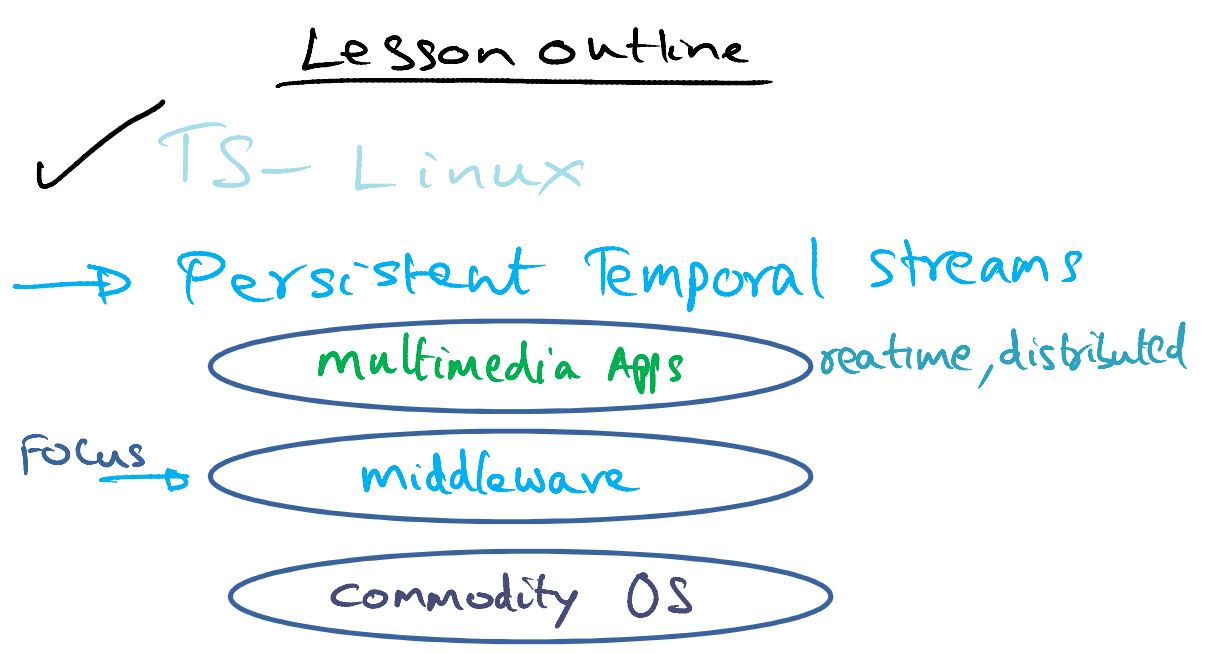 Lesson outline
TS-Linux
Persistent Temporal streams
multimedia Apps reatime, distributed
Focus middleware
commodity OS